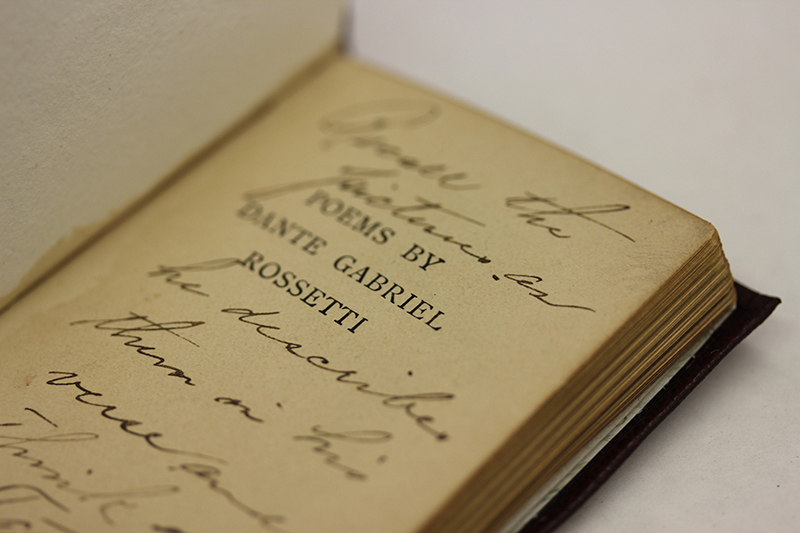 Recall the
pictures as
POEMS BY
DANTE GABRIEL
ROSSETTI
he describes
them in his
verse and
I think